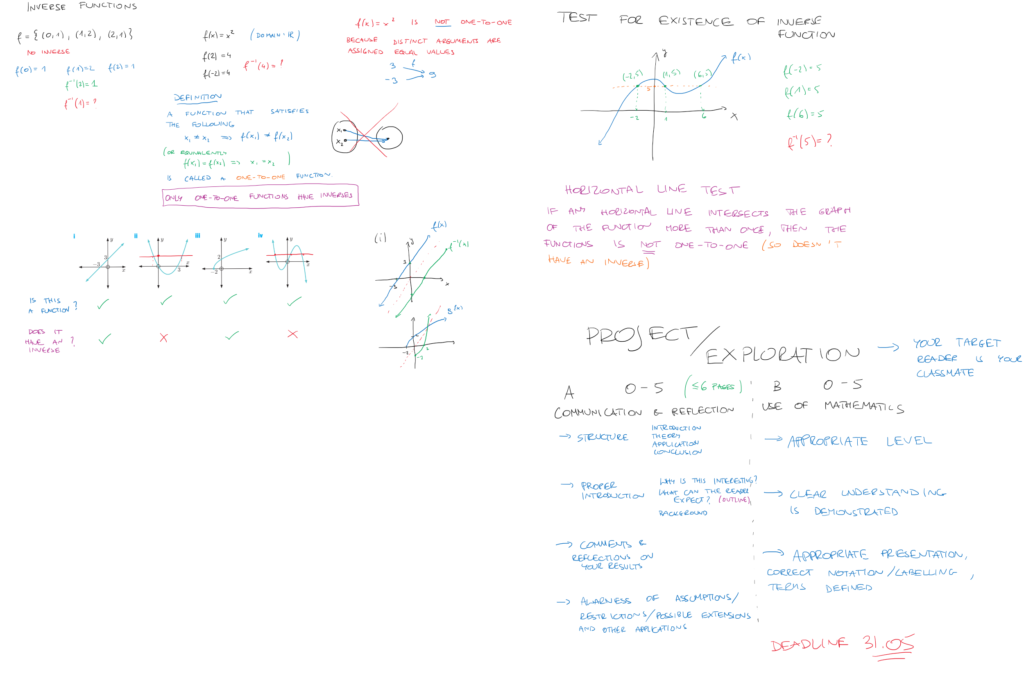 INVERSE FUNCTIONS
f = { (0,1), (1,2), (2,1) }
NO INVERSE
f(0)=1 f(1)=2 f(2)=1
f⁻¹(2)=1
f⁻¹(1)=?
f(x)=x² (DOMAIN=ℝ)
f(2)=4
f(-2)=4 f⁻¹(4)=?
DEFINITION
A FUNCTION THAT SATISFIES
THE FOLLOWING
x₁ ≠ x₂ ⟹ f(x₁) ≠ f(x₂)
(OR EQUIVALENTLY
f(x₁)=f(x₂) ⟹ x₁=x₂ )
IS CALLED A ONE-TO-ONE FUNCTION.
ONLY ONE-TO-ONE FUNCTIONS HAVE INVERSES
f(x)=x² IS NOT ONE-TO-ONE
BECAUSE DISTINCT ARGUMENTS ARE
ASSIGNED EQUAL VALUES
3 f
-3 9
x₁
x₂
i ii iii iv
y y y y
2 2
-3 3 x x -3 x x
IS THIS
A FUNCTION?
DOES IT
HAVE AN ?
INVERSE
(i) y f(x)
f⁻¹(x)
3
-3 x
g(x)
-2
-2
TEST FOR EXISTENCE OF INVERSE
FUNCTION
y f(x)
(-2,5) (1,5) (6,5)
5
-2 1 6 x
f(-2)=5
f(1)=5
f(6)=5
f⁻¹(5)=?
HORIZONTAL LINE TEST
IF ANY HORIZONTAL LINE INTERSECTS THE GRAPH
OF THE FUNCTION MORE THAN ONCE, THEN THE
FUNCTIONS IS NOT ONE-TO-ONE (SO DOESN'T
HAVE AN INVERSE)
PROJECT/
EXPLORATION → YOUR TARGET
READER IS YOUR
CLASSMATE
A 0-5 (≤6 PAGES)
COMMUNICATION & REFLECTION
→ STRUCTURE INTRODUCTION
THEORY
APPLICATION
CONCLUSION
→ PROPER
INTRODUCTION
WHY IS THIS INTERESTING?
WHAT CAN THE READER
EXPECT? (OUTLINE)
BACKGROUND
→ COMMENTS &
REFLECTIONS ON
YOUR RESULTS
→ AWARNESS OF ASSUMPTIONS/
RESTRICTIONS/POSSIBLE EXTENSIONS
AND OTHER APPLICATIONS
B 0-5
USE OF MATHEMATICS
→ APPROPRIATE LEVEL
→ CLEAR UNDERSTANDING
IS DEMONSTRATED
→ APPROPRIATE PRESENTATION,
CORRECT NOTATION/LABELLING,
TERMS DEFINED
DEADLINE 31.05